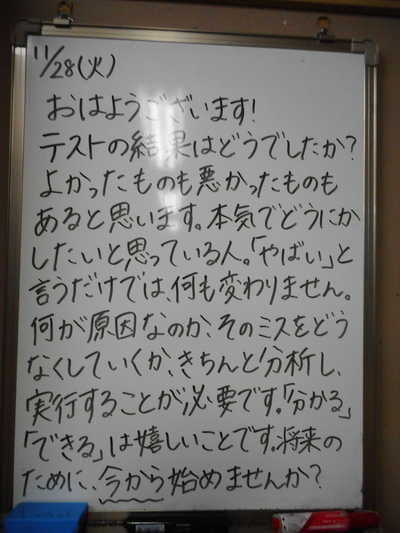 11/28(火)
おはようございます!
テストの結果はどうでしたか?
よかったものも悪かったものも
あると思います。本気でどうにか
したいと思っている人。「やばい」と
言うだけでは、何も変わりません。
何が原因なのか、そのミスをどう
なくしていくか、きちんと分析し、
実行することが必要です。「分かる」
「できる」は嬉しいことです。将来の
ために、今から始めませんか?